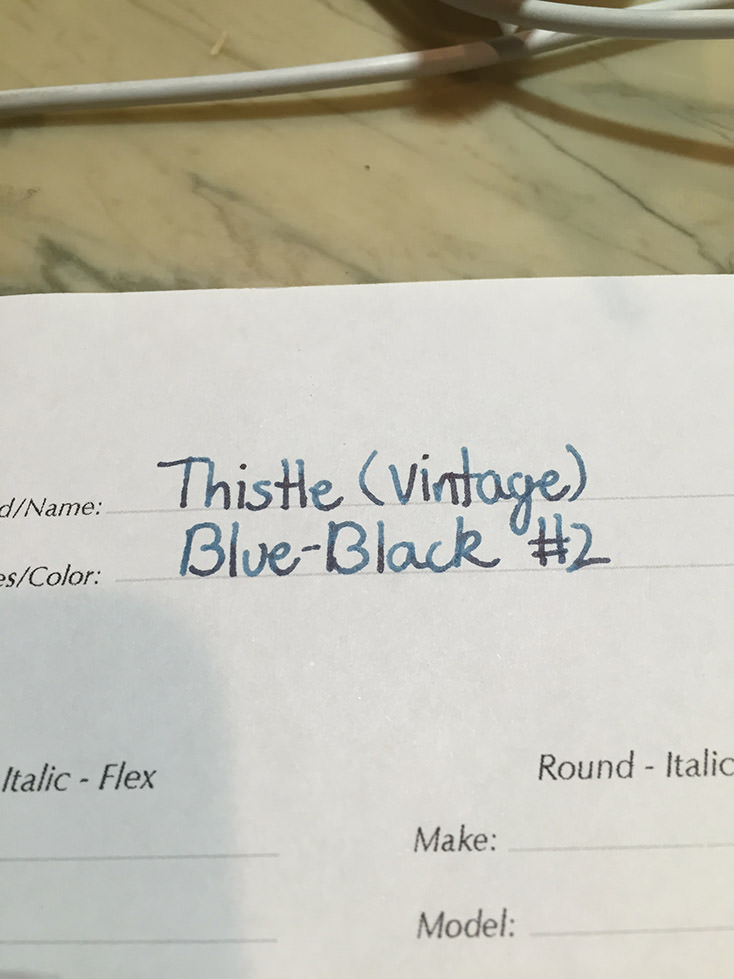 d/Name: Thistle (Vintage)
es/Color: Blue-Black #2
Italic - Flex Round - Italic
Make:
Model: